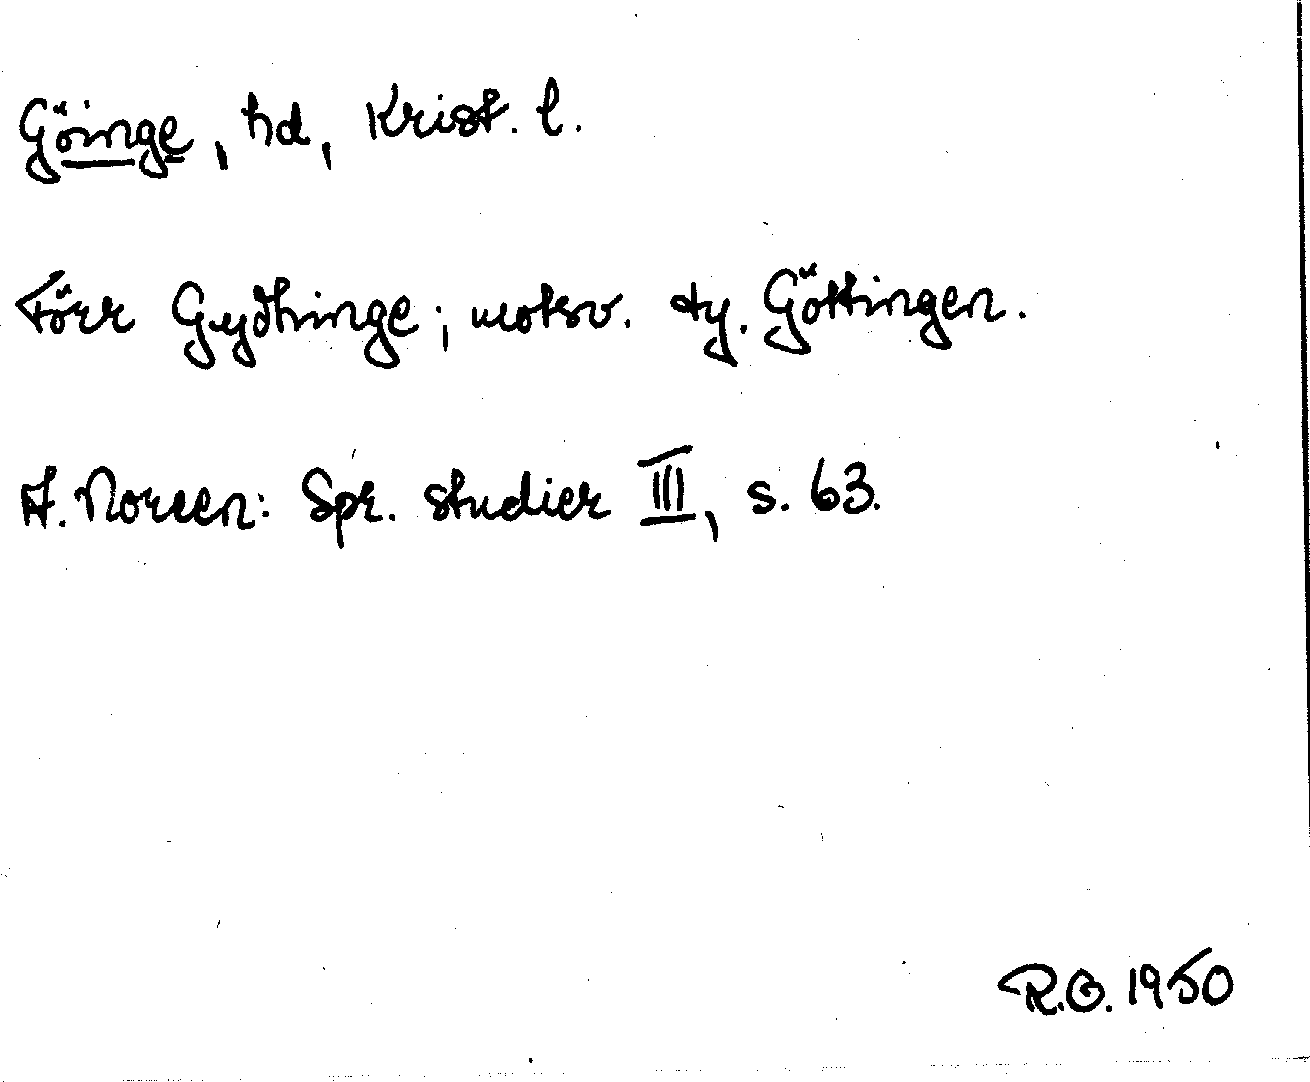 Göinge, hd, Krist. l.
Förr Gyðhinge; motsv. ty. Göttingen.
A. Noreen: Spr. studier III, s. 63.
R.G. 1950